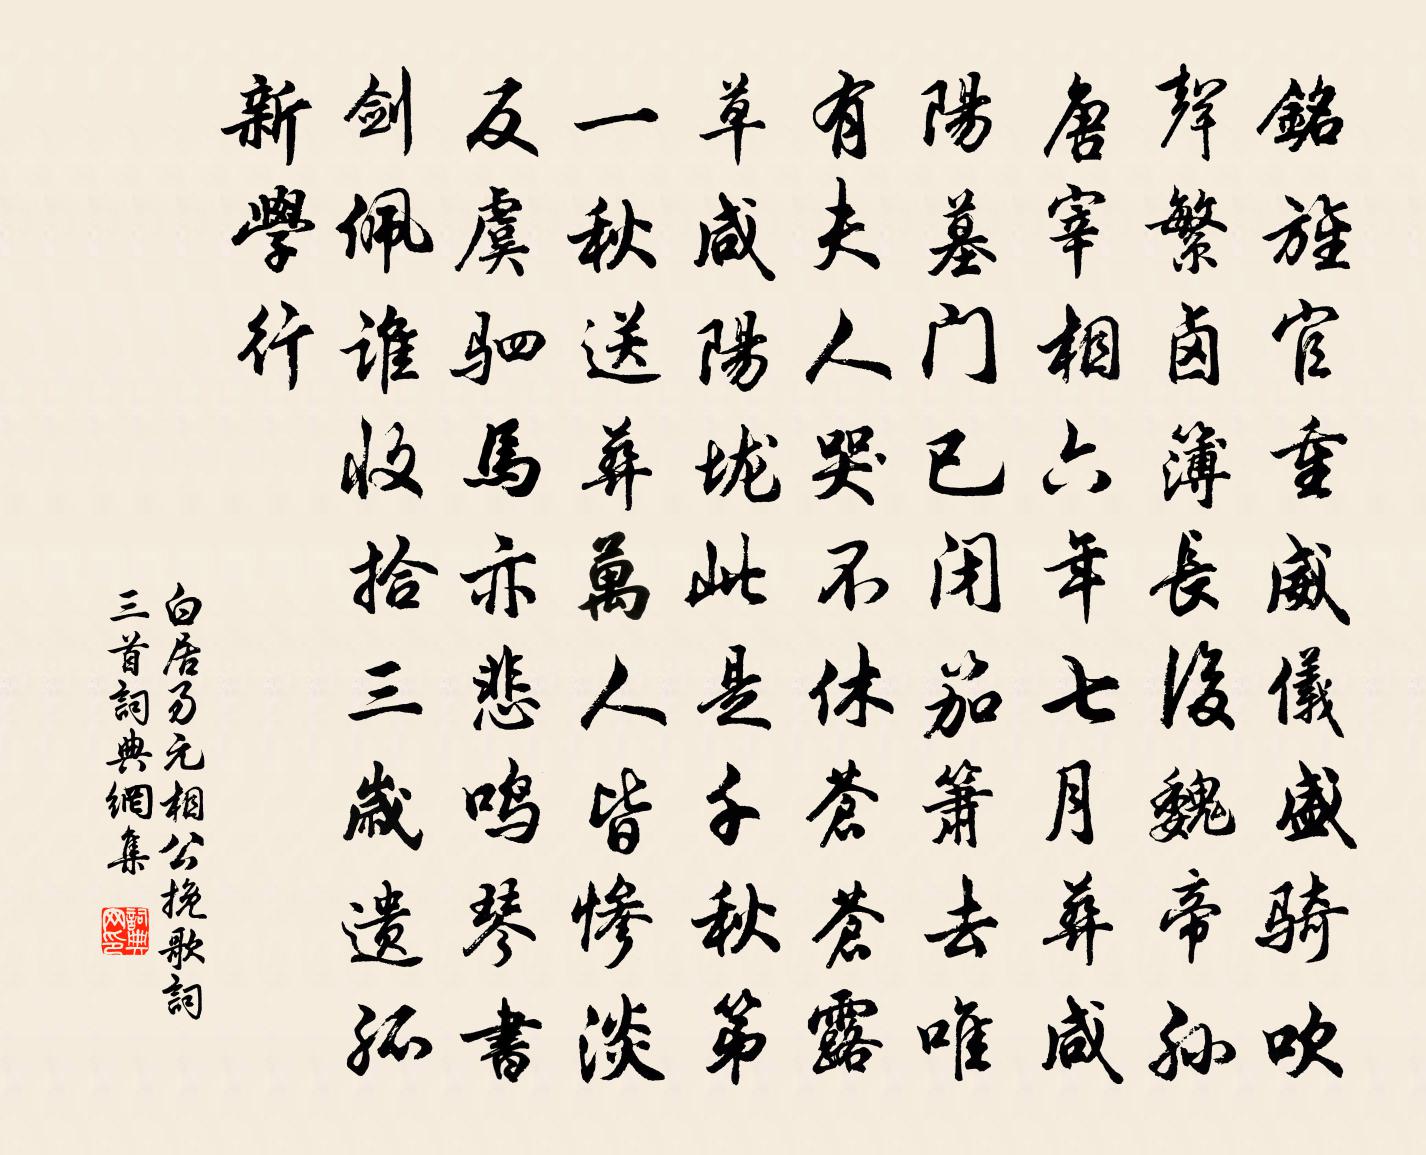 銘旌官重威儀盛騎吹
聲繁鹵簿長後魏帝孫
唐宰相六年七月葬咸
陽墓门已闭笳簫去唯
有夫人哭不休蒼蒼露
草咸陽垅此是千秋第
一秋送葬萬人皆慘淡
反虞驷馬亦悲鸣琴書
剑佩誰收拾三歲遗孤
新學行
白居易元相公挽歌詞
三首詞典網集
詞典
网印